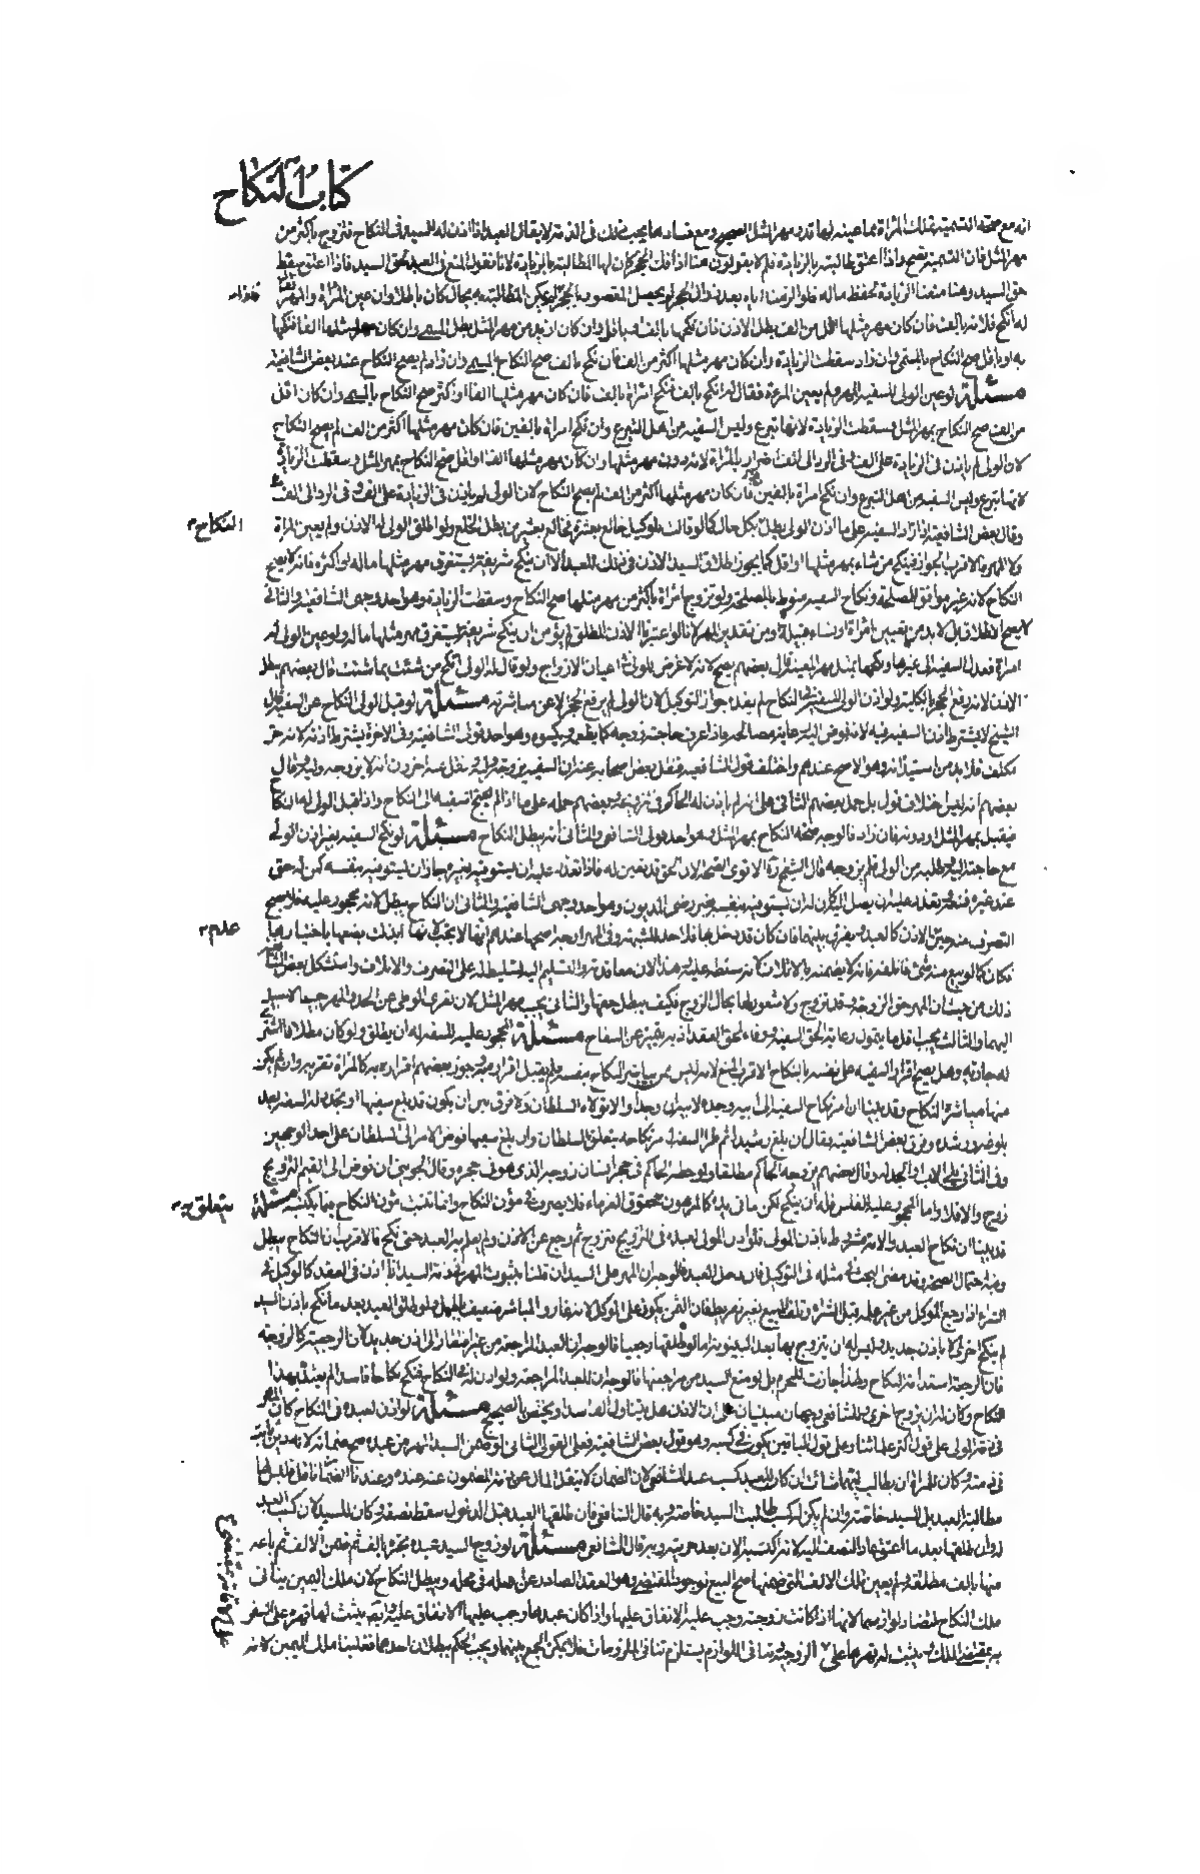 كتاب النكاح
انه مع صحة التسمية تملك المرأة بما عينه لها قدر مهر المثل الصحيح ومع فساده ما يجب ذلك في الذمة لا يقال العبد اذا اذن له السيد في النكاح فتزوج بأكثر من
مهر المثل فان التسمية تصح واذا اعتق طالبته بالزيادة فلم لا يقولون هنا اذا فك الحجر كان لها المطالبة بالزيادة لانا نقول المنع في العبد لحق السيد فاذا اعتق سقط
حق السيد وهنا منعنا الزيادة لحفظ ماله فلو الزمناه اياه بعد زوال الحجر لم يحصل المقصود بالحجر
له انكح فلانة بالف فان كان مهر مثلها اقل من الف بطل الاذن فان نكحها بالف او باقل وان كان ازيد من مهر المثل بطل المسمى وان كان مهر مثلها الفا فنكحها
به او باقل صح النكاح بالمسمى وان زاد سقطت الزيادة وان كان مهر مثلها اكثر من الف فان نكح بالف صح النكاح بالمسمى وان زاد لم يصح النكاح عند بعض الشافعية
مسئلة لو عين الولي للسفيه المهر ولم يعين المرءة فقال له انكح بالف فنكح امرأة بالف فان كان مهر مثلها الفا او اكثر صح النكاح بالمسمى وان كان اقل
من الف صح النكاح بمهر المثل وسقطت الزيادة لانها تبرع وليس السفيه من اهل التبرع وان نكح امرأة بالفين فان كان مهر مثلها اكثر من الف لم يصح النكاح
لان الولي لم ياذن في الزيادة على الف وفي الرد الى الف اضرار بالمرأة لانه دون مهر مثلها وان كان مهر مثلها الفا او اقل صح النكاح بمهر المثل وسقطت الزيادة
لانها تبرع وليس السفيه من اهل التبرع وان نكح امرأة بالفين فان كان مهر مثلها اكثر من الف لم يصح النكاح لان الولي لم ياذن في الزيادة على الف وفي الرد الى الف
وقال بعض الشافعية اذا زاد السفيه على ما اذن الولي بطل بكل حال كما لو قالت لوكيلها خالع بعشرة فخالع بعشرين يبطل الخلع ولو اطلق الولي له الاذن ولم يعين امرأة
ولا المهر فالاقرب الجواز فينكح من شاء بمهر مثلها او اقل كما يجوز اطلاق السيد الاذن في ذلك للعبد الا ان ينكح شريفة يستغرق مهر مثلها ماله او اكثره فانه لا يصح
النكاح لانه غير موافق للمصلحة ونكاح السفيه منوط بالمصلحة ولو تزوج امرأة باكثر من مهر مثلها صح النكاح وسقطت الزيادة وهو احد وجهي الشافعية والثاني
لا يصح الاطلاق بل لا بد من تعيين امرأة او نساء قبيلة او من تقدير المهر لانا لو اعتبرنا الاذن المطلق لم يؤمن ان ينكح شريفة يستغرق مهر مثلها ماله ولو عين الولي له
امرأة فعدل السفيه الى غيرها ونكحها بمثل مهر المعينة قال بعضهم يصح لانه لا غرض للولي في اعيان الازواج ولو قال له الولي انكح من شئت بما شئت قال بعضهم يبطل
الاذن لانه رفع الحجر بالكلية ولو اذن الولي للسفيه في النكاح لم يفده جواز التوكيل لان الولي لم يرفع الحجر الا عن مباشرته مسئلة لو قبل الولي النكاح عن السفيه قال
الشيخ لا يشترط اذن السفيه فيه لانه فوض اليه رعاية مصالحه فاذا عرف حاجته زوجه كما يطعم ويكسوه وهو احد قولي الشافعية وفي الآخر يشترط اذنه لانه حر
مكلف فلا بد من استيذانه وهو الاصح عندهم واختلف قول الشافعية فنقل بعض اصحابه عنه ان السفيه يزوجه وليه ونقل عنه آخرون انه لا يزوجه وليه وقال
بعضهم انه ليس اختلاف قول بل حمل بعضهم الثاني على انه لم ياذن له الحاكم في تزويجه وبعضهم حمله على ما اذا لم يحتج السفيه الى النكاح واذا قبل الولي له النكاح
فيقبل بمهر المثل او دونه فان زاد فالوجه صحة النكاح بمهر المثل وهو احد قولي الشافعي والثاني انه يبطل النكاح مسئلة لو نكح السفيه بغير اذن الولي
مع حاجته اليه وطلبه من الولي فلم يزوجه قال الشيخ ره الاقوى الصحة لان الحق قد تعين له فاذا تعذر عليه ان يستوفيه بغيره جاز ان يستوفيه بنفسه كمن له حق
عند غيره فمنعه وتعذر عليه ان يصل اليه كان له ان يستوفيه بنفسه بغير رضى المديون وهو احد وجهي الشافعية والثاني ان النكاح يبطل لانه محجور عليه فلا يصح
التصرف منه بغير الاذن كالعبد ويفرق بينهما فان كان قد دخل بها فلا حد للشبهة وفي المهر اوجه اصحها عندهم انها لا يجب لانها بذلت بضعها باختيارها
فكان كما لو بيع منه شئ فاتلفه فانه لا يضمنه بالاتلاف لانه سلطه عليه وهذا لان معاقدته والتسليم اليه تسليط له على التصرف والاتلاف واستشكل بعض الشافعية
ذلك من حيث ان المهر حق الزوجة وقد تزوج ولا شعور لها بحال الزوج فكيف يبطل حقها والثاني يجب مهر المثل لان تعرى الوطي عن الحد والمهر جميعا لا سبيل
اليها والثالث يجب اقل ما يتمول رعاية لحق السفيه ووفاء لحق العقد اذ به يتميز عن السفاح مسئلة المحجور عليه للسفه له ان يطلق ولو كان مطلاقا اشترى
له جارية وهل يصح اقرار السفيه على نفسه بالنكاح الاقرب المنع لانه ليس ممن يباشر النكاح بنفسه ولم يقبل اقراره به وجوز بعضهم اقراره به كالمرأة تقر به وان لم يكن
منها مباشرة النكاح وقد بينا ان امر نكاح السفيه الى ابيه وجده لابيه ان وجدا والا تولاه السلطان ولا فرق بين ان يكون قد بلغ سفيها او تجدد له السفه بعد
بلوغه ورشده وفرق بعض الشافعية فقال ان بلغ رشيدا ثم طرأ السفه امر نكاحه يتعلق بالسلطان وان بلغ سفيها فوض الامر الى السلطان على احد الوجهين
وفي الثاني الى الاب او الجد له وقال بعضهم يزوجه الحاكم مطلقا ولو جعله الحاكم في حجر انسان زوجه الذي هو في حجره وقال الجويني ان فوض الى القيم التزويج
زوج والا فلا واما المحجور عليه للفلس فله ان ينكح لكن ما في يده كالمرهون بحقوق الغرماء فلا يصرف في مؤن النكاح وانما تثبت مؤن النكاح فيما يكسبه مسئلة
قد بينا ان نكاح العبد والامة مشروط باذن المولى فلو اذن المولى لعبده في التزويج فتزوج ثم رجع عن الاذن ولم يعلم به العبد حتى نكح فالاقرب ان النكاح يبطل
وفيه احتمال الصحة وقد مضى البحث في مثله في التوكيل فان دخل العبد فالوجه ان المهر على السيد ان قلنا بثبوت المهر في ذمة السيد اذا اذن في العقد كالوكيل في
الشراء اذا رجع الموكل من غير علمه قبل الشراء وتلف المبيع بغير تفريط فان الثمن يكون على الموكل لانه غار والمباشر ضعيف بالجهل ولو طلق العبد بعد ما نكح باذن السيد
لم ينكح اخرى الا باذن جديد وليس له ان يتزوج بها بعد البينونة اما لو طلقها رجعيا فالوجه ان للعبد المراجعة من غير افتقار الى اذن جديد لان الرجعية كالزوجة
فان الرجعة استدامة النكاح ولهذا جازت للمحرم بل لو منع السيد من مراجعتها فالوجه ان للعبد المراجعة ولو اذن له في النكاح فنكح نكاحا فاسدا لم يعتد بهذا
النكاح وكان له ان يتزوج اخرى وللشافعي وجهان مبنيان على ان الاذن هل يتناول الفاسد او يختص بالصحيح مسئلة لو اذن لعبده في النكاح كان المهر
في ذمة المولى على قول اكثر علمائنا وعلى قول الباقين يكون في كسبه وهو قول بعض الشافعية فعلى القول الثاني لو ضمن السيد المهر من عبده صح ضمانه لانه دين ثابت
في ذمته وكان للمرأة ان يطالب ايهما شاءت ان كان للعبد كسب عند الشافعي لان الضمان لا ينقل المال عن ذمة المضمون عنه عنده وعندنا الضمان ناقل فليس لها
مطالبة العبد بل السيد خاصة وان لم يكن له كسب طالبت السيد خاصة وبه قال الشافعي فان طلقها العبد قبل الدخول سقط نصفه وكان للسيد لان كسب العبد
له وان طلقها بعد ما اعتق عاد النصف اليه لانه اكتسبه الآن بعد حريته وبه قال الشافعي مسئلة لو زوج السيد عبده بحرة بالف ثم ضمن الالف ثم باعه
منها بالف مطلقة ولم يعين تلك الالف التي ضمنها صح البيع لوجود المقتضي وهو العقد الصادر عن اهله في محله ويبطل النكاح لان ملك اليمين ينافي
ملك النكاح لتضاد لوازمهما لانها اذا كانت زوجة وجب عليه الانفاق عليها واذا كان عبدها وجب عليها الانفاق عليه وايضا يثبت لها قهره على السفر
به بمقتضى الملك ويثبت له قهرها على الزوجية وتنافي اللوازم يستلزم تنافي الملزومات فلا يمكن الجمع بينهما ويجب الحكم ببطلان احدهما فغلبنا ملك اليمين لانه
النكاح
عدم
يتعلق به